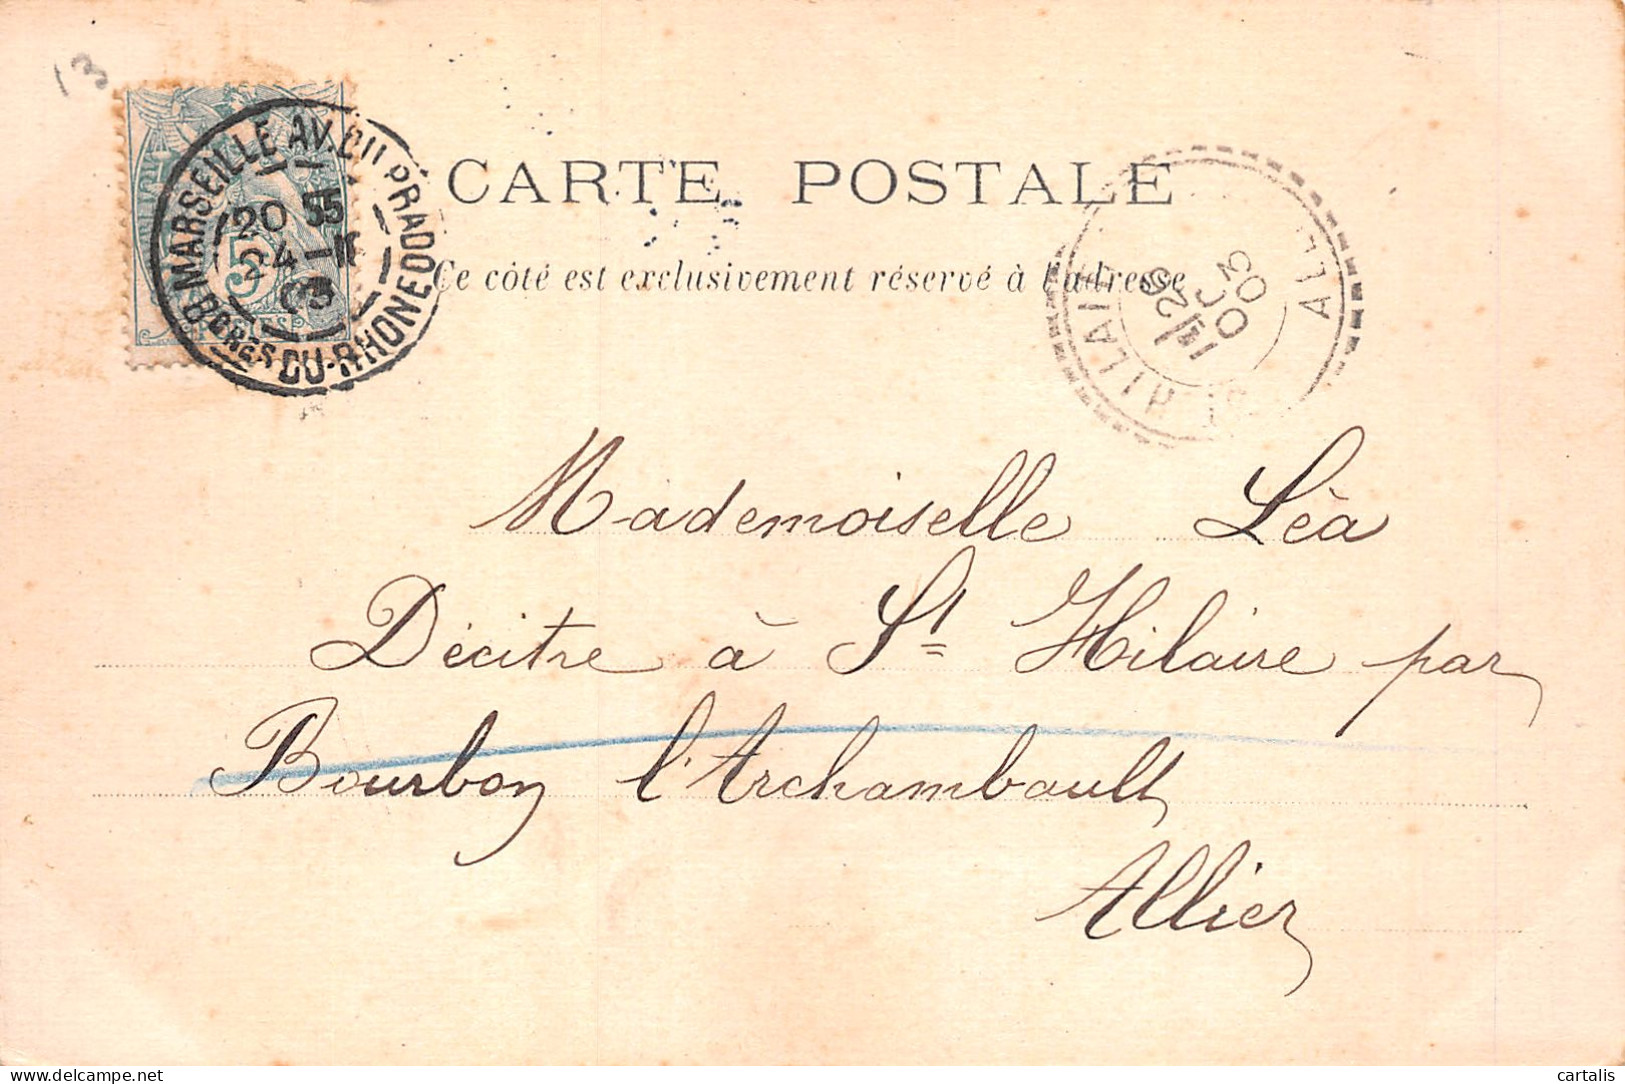 13
MARSEILLE AV. DU PRADO
20 55
24-11
03
BCHES-DU-RHONE
5
CARTE POSTALE
Ce côté est exclusivement réservé à l'adresse
ST HILAIRE
ALL
26
03
Mademoiselle Léa
Décitre à St Hilaire par
Bourbon l'Archambault
Allier
cartalis